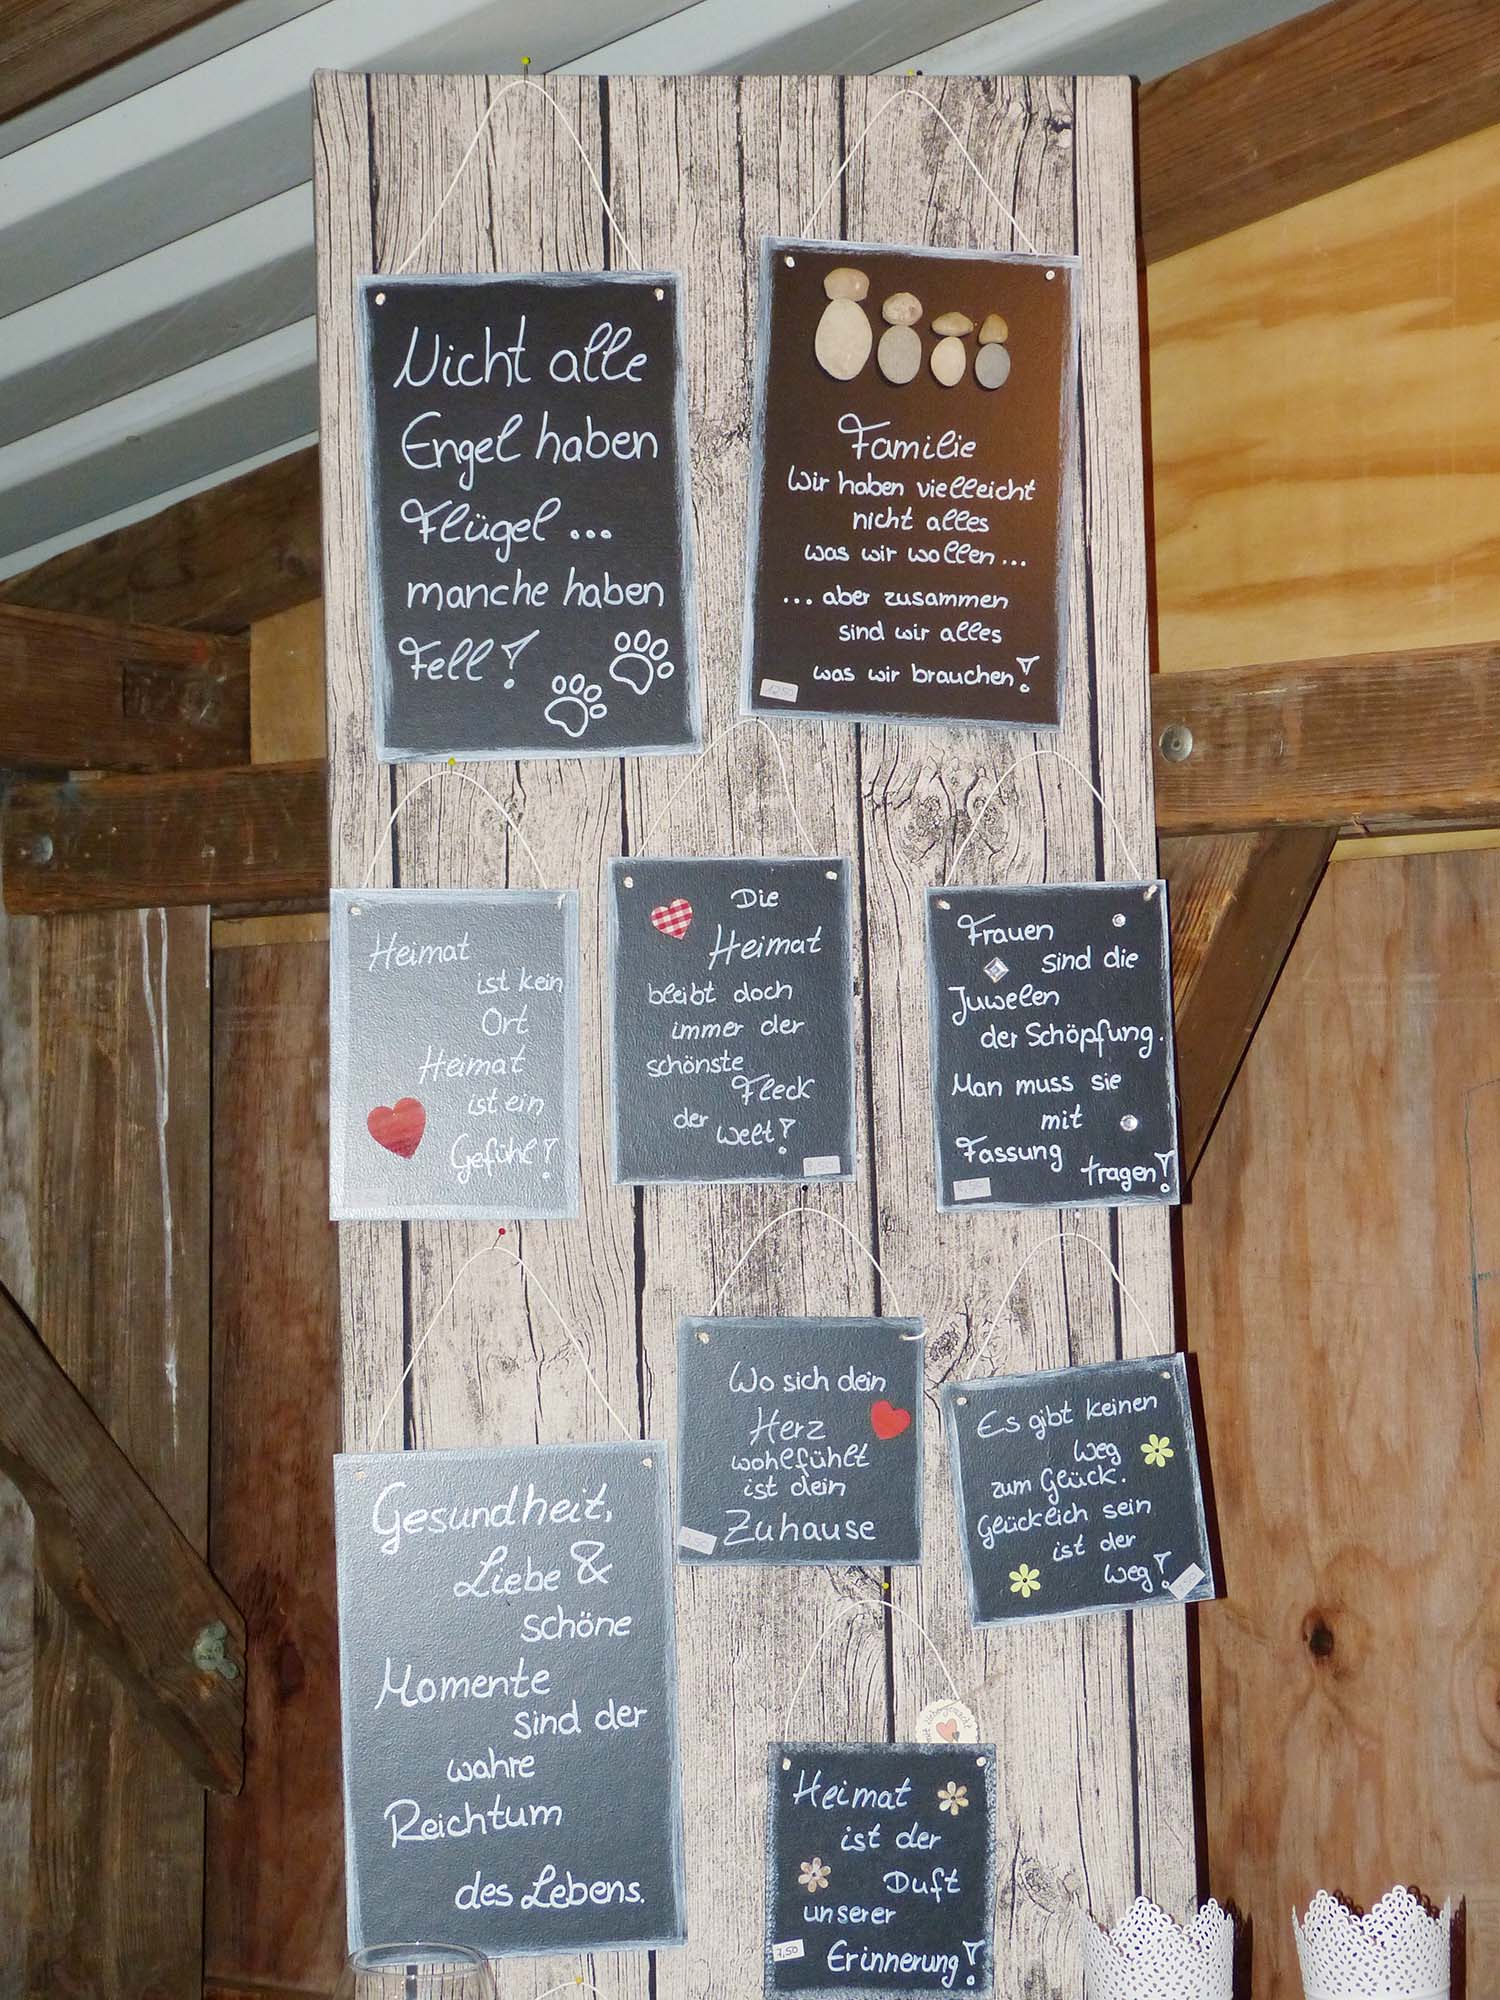 Nicht alle
Engel haben
Flügel ...
manche haben
Fell!
Familie
Wir haben vielleicht
nicht alles
was wir wollen ...
... aber zusammen
sind wir alles
was wir brauchen!
12,50
Heimat
ist kein
Ort
Heimat
ist ein
Gefühl!
Die
Heimat
bleibt doch
immer der
schönste
Fleck
der Welt!
Frauen
sind die
Juwelen
der Schöpfung.
Man muss sie
mit
Fassung
tragen!
Gesundheit,
Liebe &
schöne
Momente
sind der
wahre
Reichtum
des Lebens.
Wo sich dein
Herz
wohlfühlt
ist dein
Zuhause
Es gibt keinen
Weg
zum Glück.
Glücklich sein
ist der
Weg!
Heimat
ist der
Duft
unserer
Erinnerung!
7,50